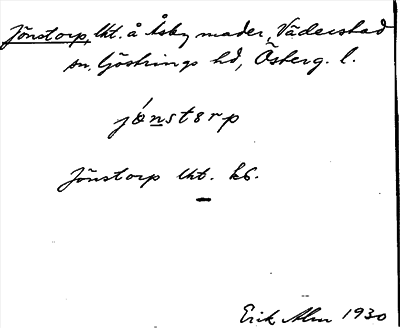 Jönstorp, lht. å Åsby mader, Väderstad
sn, Göstrings hd, Österg. l.
jönstɘrp
Jönstorp lht. k6.
Erik Alm 1930